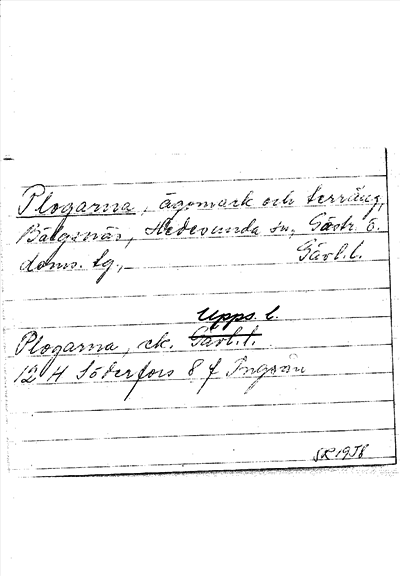 Plogarna, ägomark och terräng,
Bälgsnäs, Hedesunda sn, Gästr. ö.
doms. tg., Gävl.l.
Upps. l.
Plogarna, ek. Gävl.l.
12 H Söderfors 8 f
SR 1958